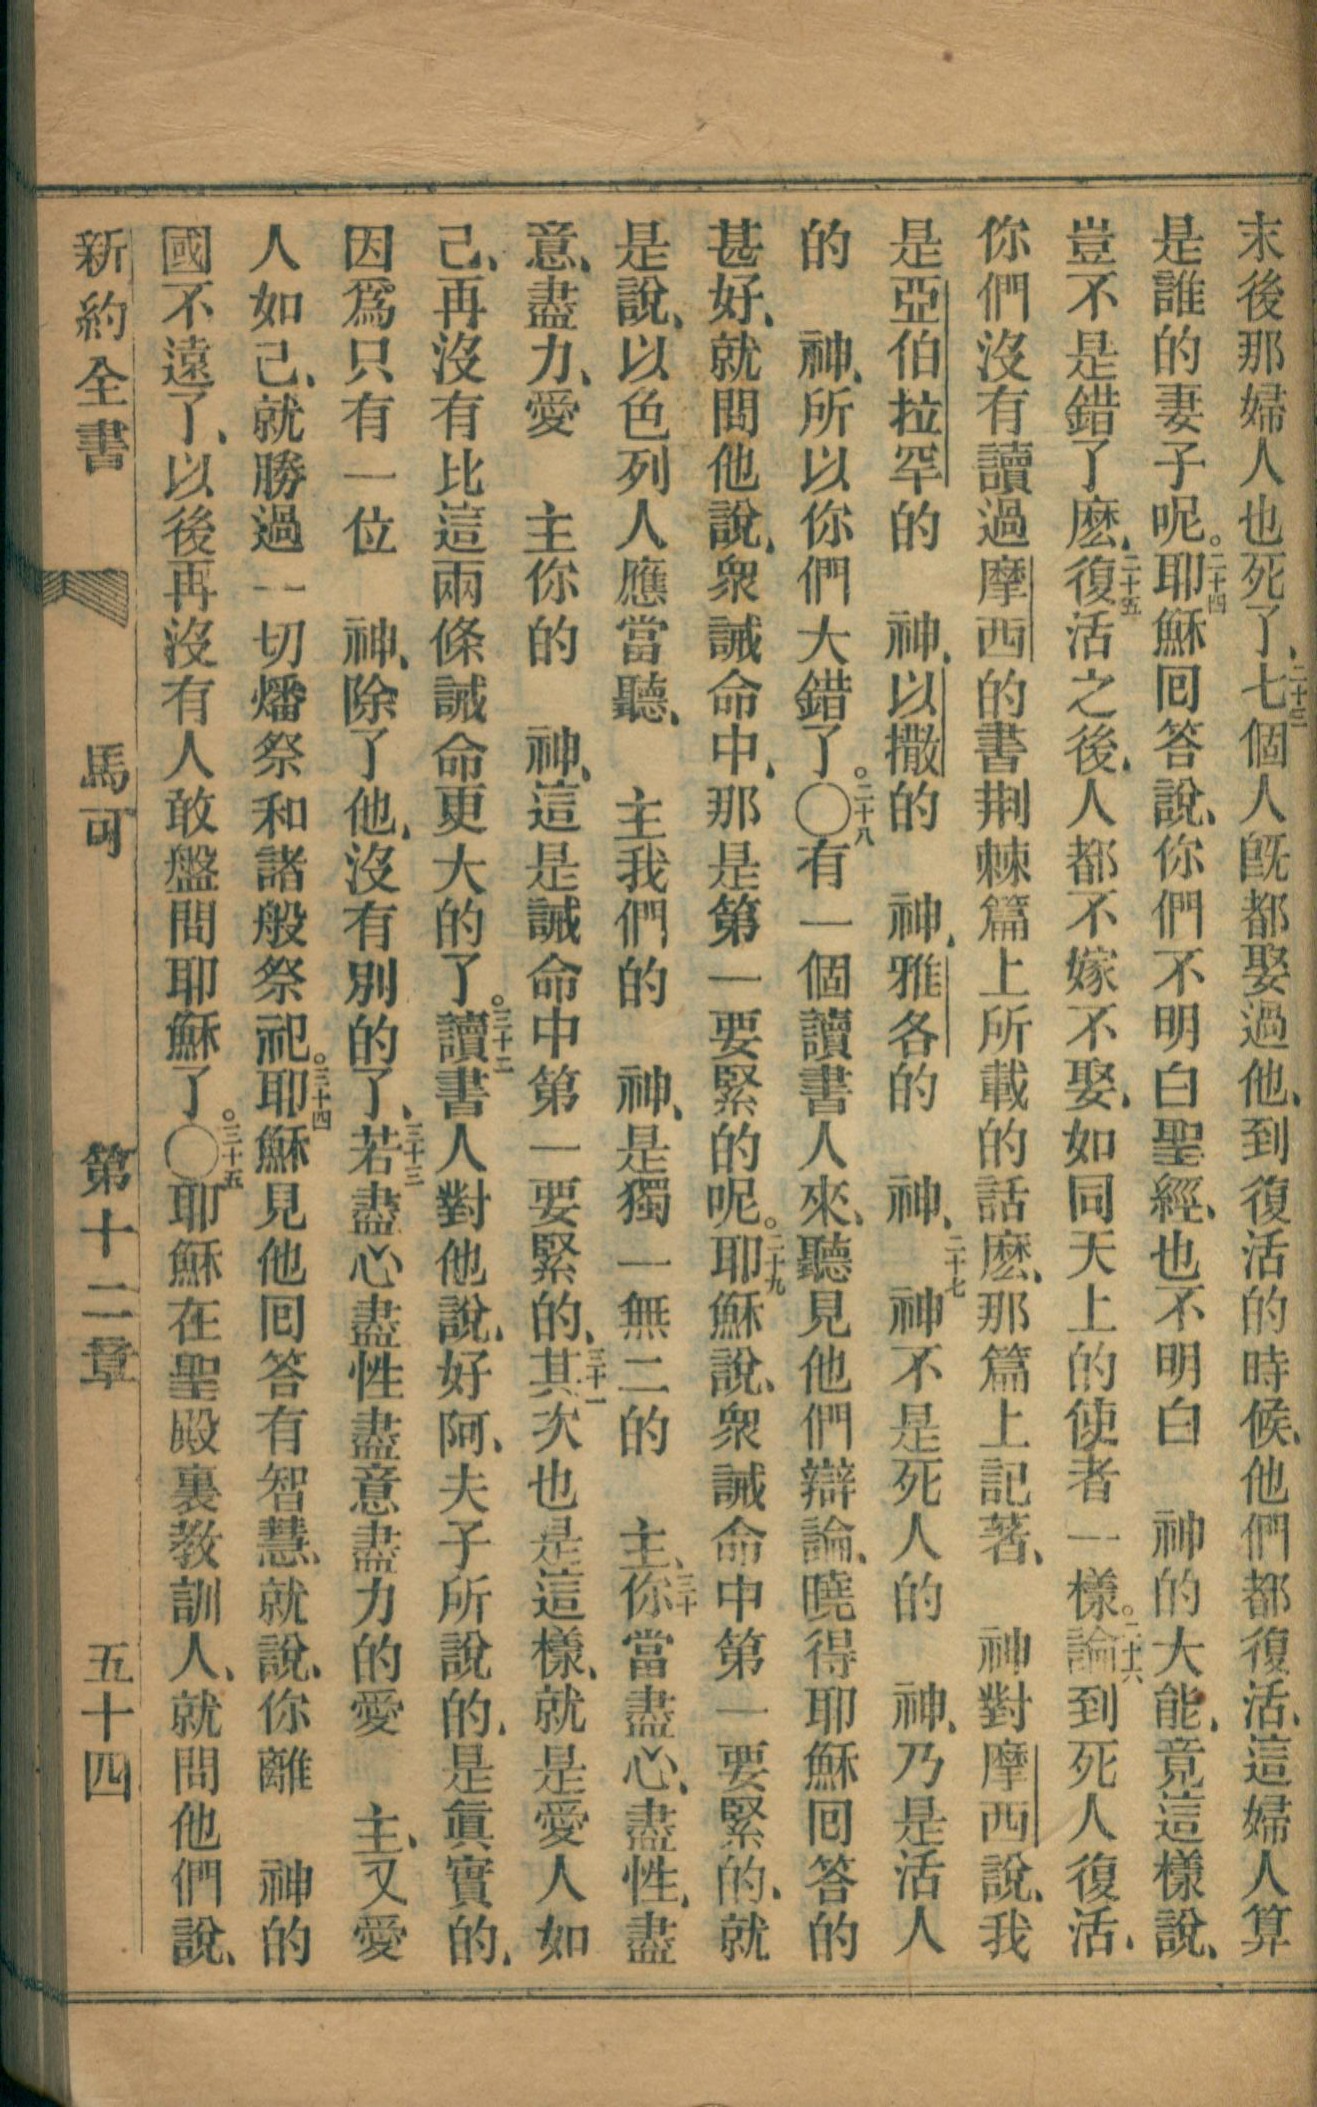 末後那婦人也死了、二十三七個人旣都娶過他、到復活的時候、他們都復活、這婦人算
是誰的妻子呢。二十四耶穌回答說、你們不明白聖經、也不明白　神的大能、竟這樣說、
豈不是錯了麽、二十五復活之後、人都不嫁不娶、如同天上的使者一樣。二十六論到死人復活、
你們沒有讀過摩西的書荆棘篇上所載的話麽、那篇上記著、　神對摩西說、我
是亞伯拉罕的　神、以撒的　神、雅各的　神、二十七　神不是死人的　神、乃是活人
的　神、所以你們大錯了。〇二十八有一個讀書人來、聽見他們辯論、曉得耶穌回答的
甚好、就問他說、衆誡命中、那是第一要緊的呢。二十九耶穌說、衆誡命中第一要緊的、就
是說、以色列人應當聽、　主我們的　神、是獨一無二的　主、三十你當盡心、盡性、盡
意、盡力、愛　主你的　神、這是誡命中第一要緊的、三十一其次也是這樣、就是愛人如
己、再沒有比這兩條誡命更大的了。三十二讀書人對他說、好阿、夫子所說的、是眞實的、
因爲只有一位　神、除了他、沒有別的了、三十三若盡心盡性盡意盡力的愛　主、又愛
人如己、就勝過一切燔祭和諸般祭祀。三十四耶穌見他回答有智慧、就說、你離　神的
國不遠了、以後再沒有人敢盤問耶穌了。〇三十五耶穌在聖殿裏教訓人、就問他們說、
新約全書　馬可　第十二章　五十四